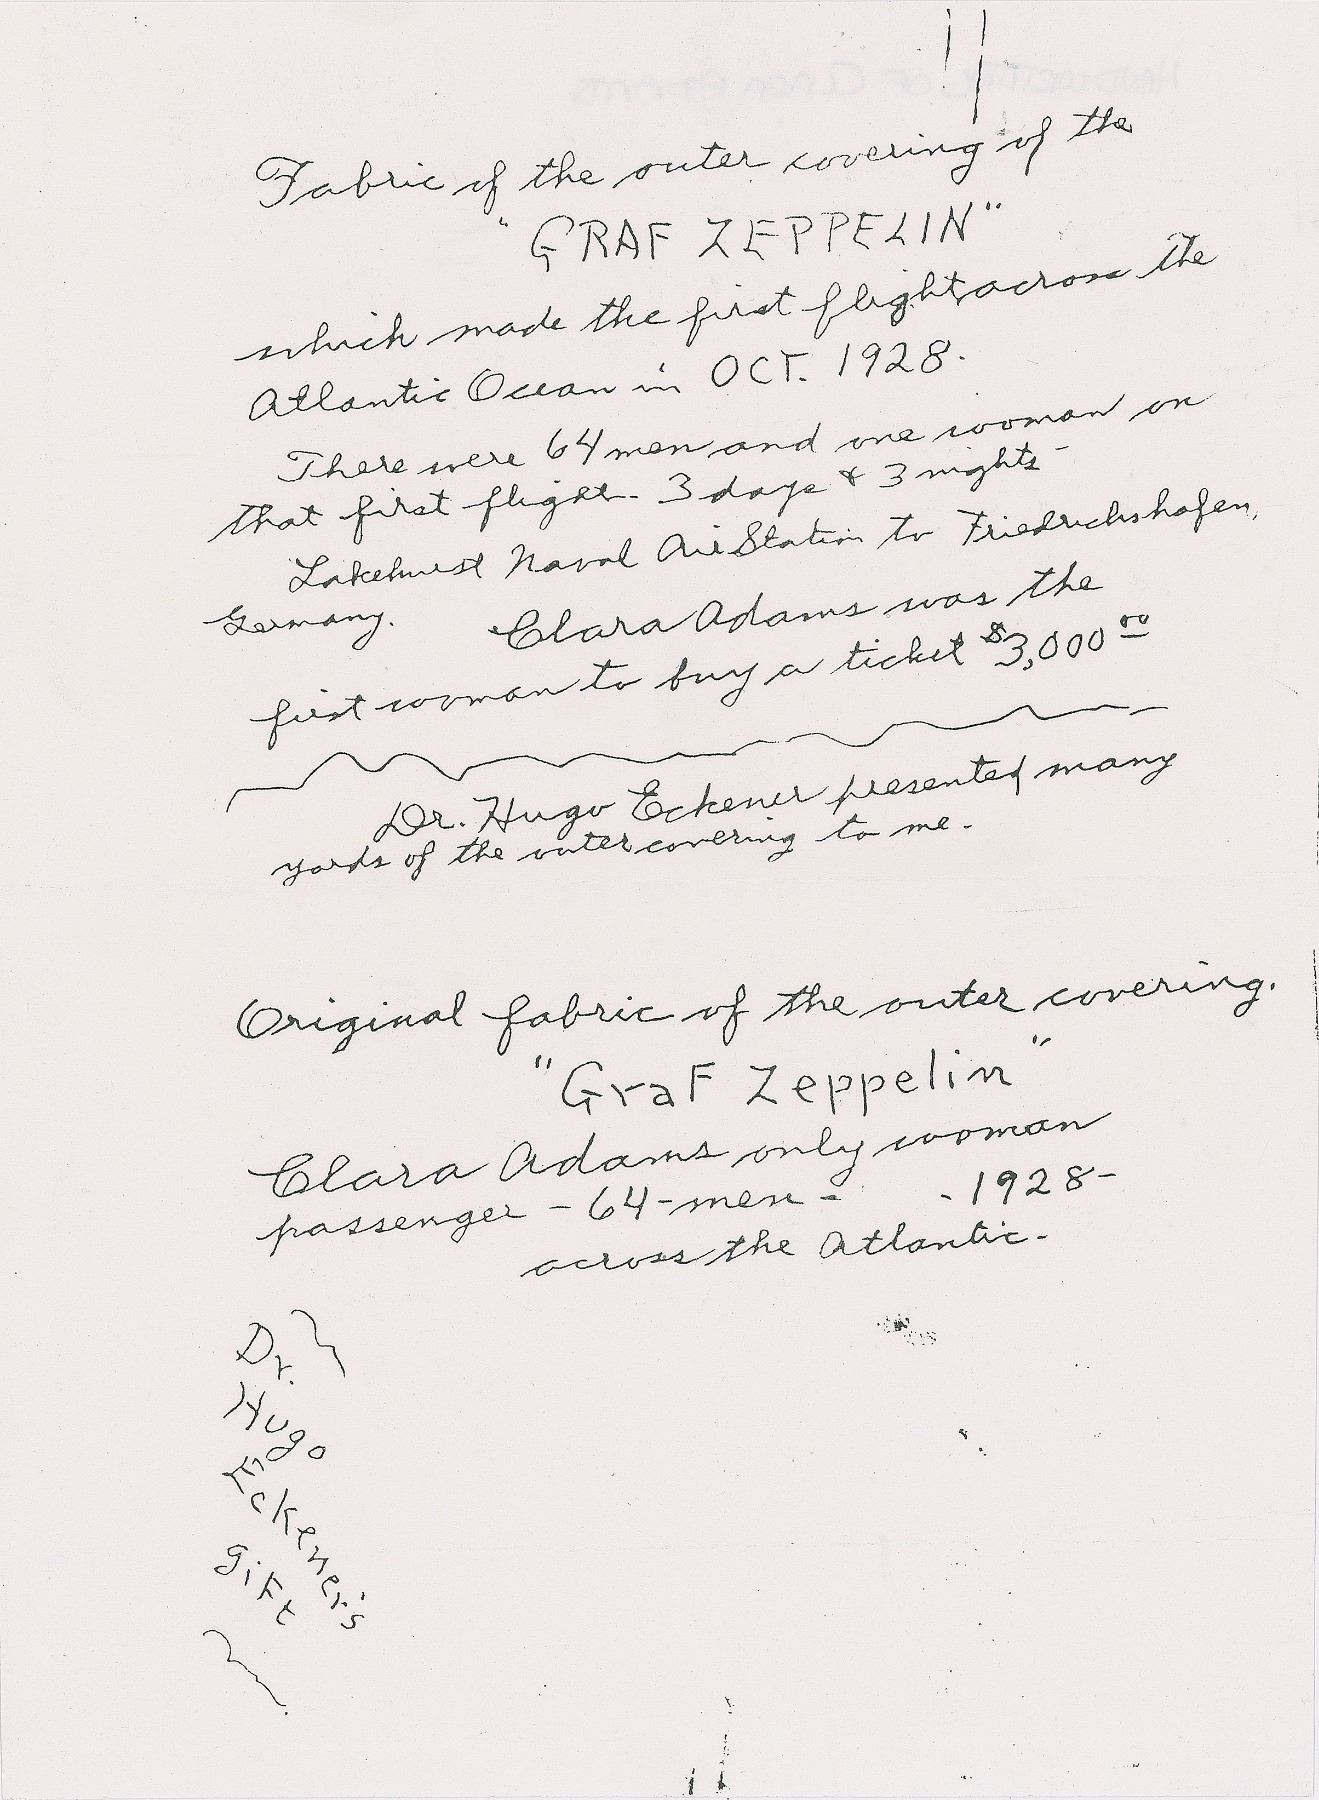 Fabric of the outer covering of the
"GRAF ZEPPELIN"
which made the first flight across the
Atlantic Ocean in OCT. 1928.
There were 64 men and one woman on
that first flight. 3 days & 3 nights-
Lakehurst Naval Air Station to Friedrichshafen,
Germany. Clara Adams was the
first woman to buy a ticket $3,000.00
Dr. Hugo Eckener presented many
yards of the outer covering to me.
Original fabric of the outer covering.
"Graf Zeppelin"
Clara Adams only woman
passenger - 64-men - - 1928-
across the Atlantic.
Dr.
Hugo
Eckener's
gift